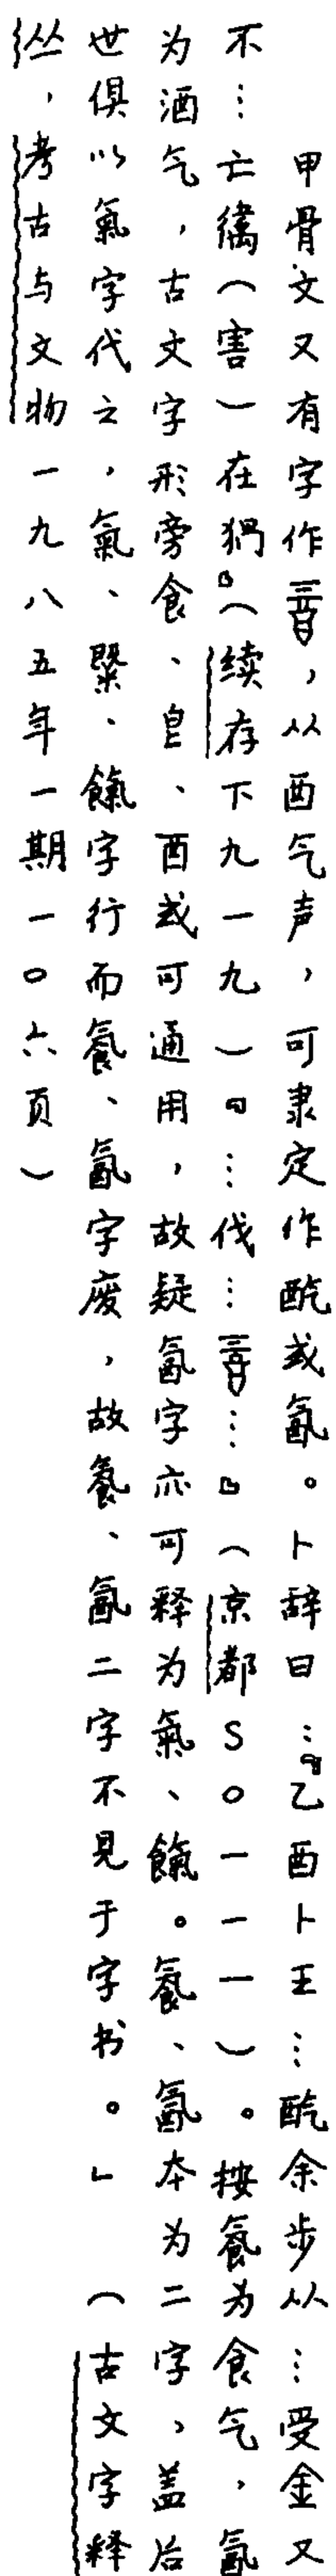 甲骨文又有字作,从酉气声,可隶定作或。卜辞曰:『乙酉卜王…余步从…受金又
不…亡(害)在』(续存下九一九)『…伐……』(京都S〇一一一)。按为食气,
为酒气,古文字形旁食、皀、酉或可通用,故疑字亦可释为氣、餼。、本为二字,盖后
世俱以氣字代之,氣、、餼字行而、字废,故、二字不见于字书。」(古文字释
丛,考古与文物一九八五年一期一〇六页)